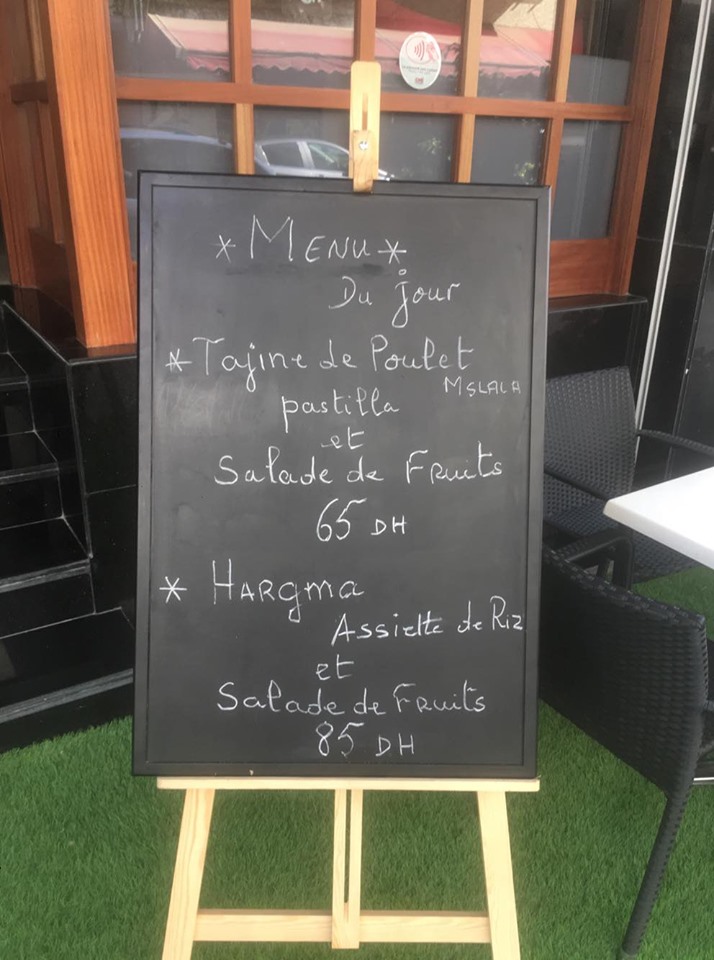 * MENU *
Du jour
* Tajine de Poulet
MSLALA
pastilla
et
Salade de Fruits
65 DH
* HARgma
Assiette de Riz
et
Salade de Fruits
85 DH